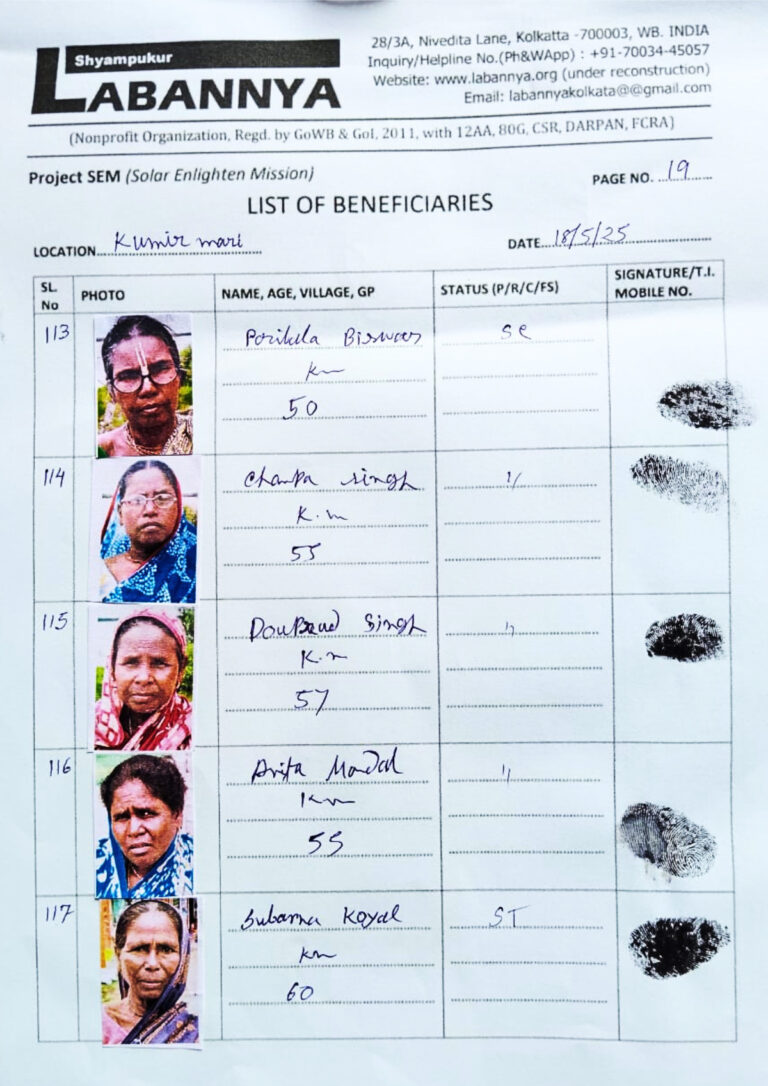 Shyampukur
LABANNYA
28/3A, Nivedita Lane, Kolkatta -700003, WB. INDIA
Inquiry/Helpline No.(Ph&WApp) : +91-70034-45057
Website: www.labannya.org (under reconstruction)
Email: labannyakolkata@@gmail.com
(Nonprofit Organization, Regd. by GoWB & GoI, 2011, with 12AA, 80G, CSR, DARPAN, FCRA)
Project SEM (Solar Enlighten Mission)
PAGE NO. 19
LIST OF BENEFICIARIES
LOCATION Kumir mari
DATE 18/5/25
SL. No PHOTO NAME, AGE, VILLAGE, GP STATUS (P/R/C/FS) SIGNATURE/T.I. MOBILE NO.
113 Biswas SC
Km
50
114 Champa Singh "
K.m
55
115 Singh "
K.m
57
116 Mondal "
Km
55
117 Subarna Koyal ST
Km
60